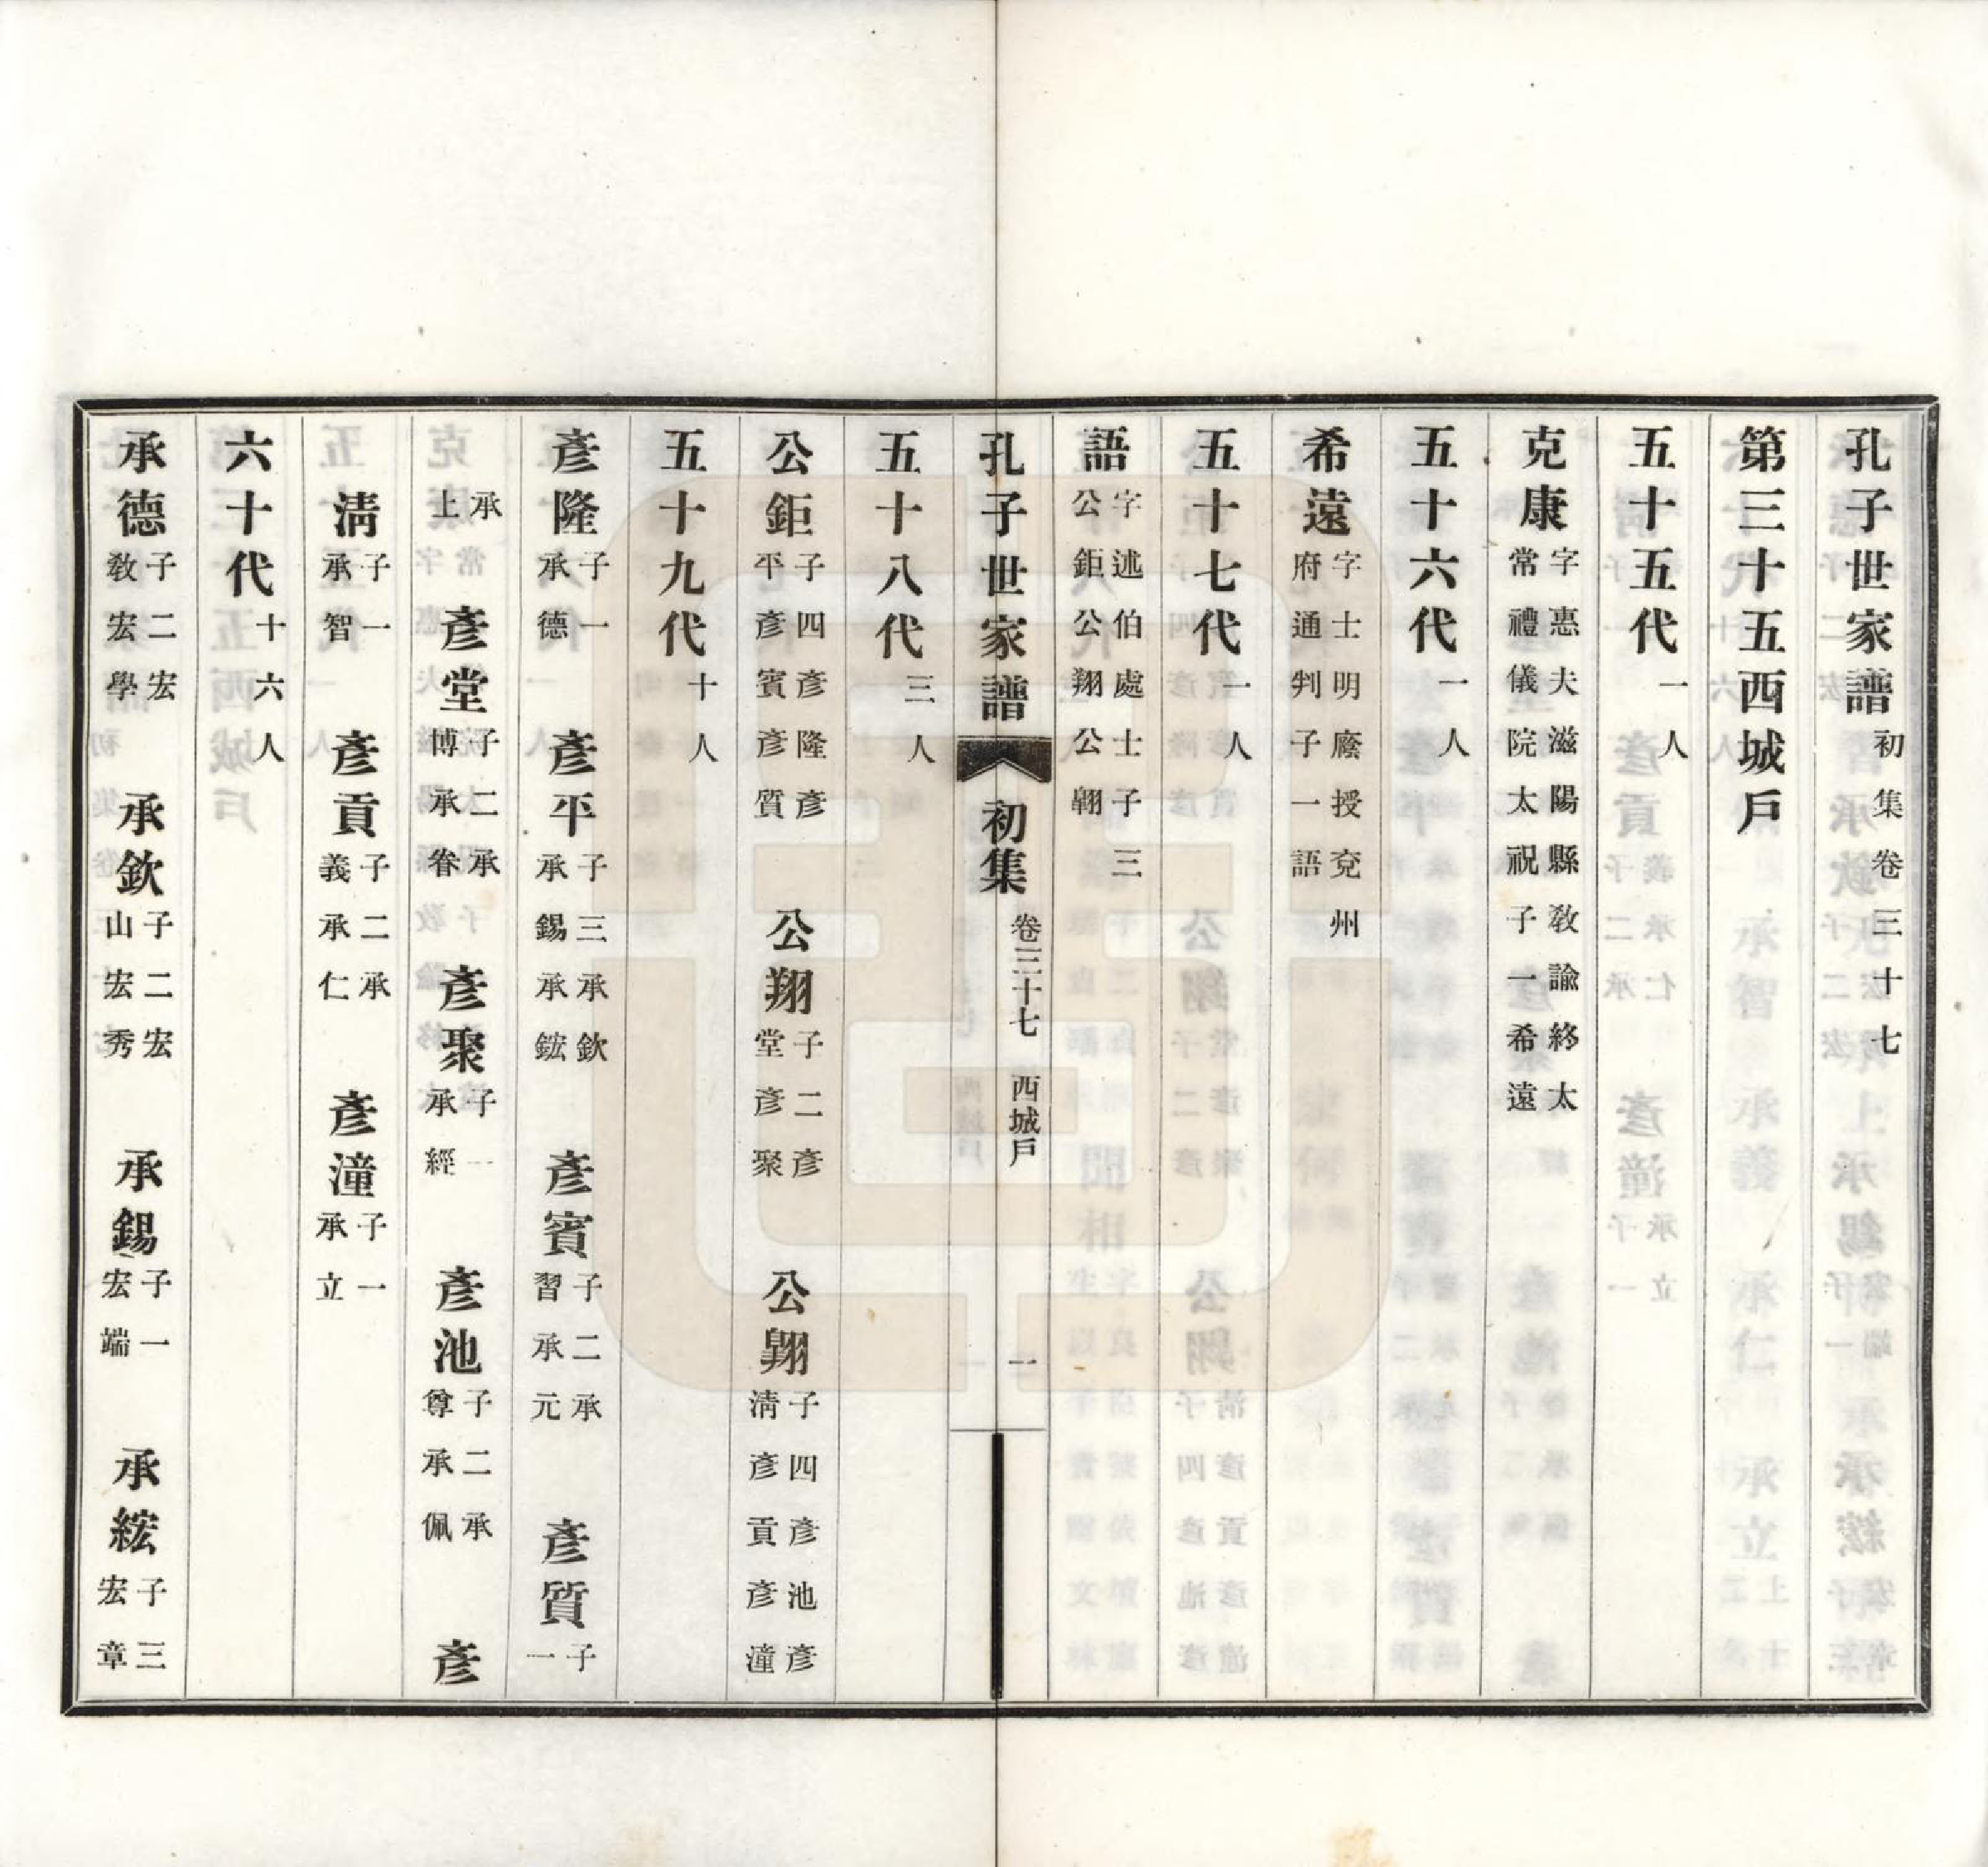 孔子世家譜初集卷三十七
第三十五西城戶
五十五代一人
克康字惠夫滋陽縣敎諭終太常禮儀院太祝子一希遠
五十六代一人
希遠字士明廕授兗州府通判子一語
五十七代一人
語字述伯處士子三公鉅公翔公翺
孔子世家譜 初集 卷三十七 西城戶 一
五十八代三人
公鉅子四彥隆彥平彥賓彥質 公翔子二彥堂彥聚 公翺子四彥池彥淸彥貢彥潼
五十九代十人
彥隆子一承德 彥平子三承欽承錫承鋐 彥賓子二承習承元 彥質子一
承上 彥堂子二承博承眷 彥聚子一承經 彥池子二承尊承佩 彥
淸子一承智 彥貢子二承義承仁 彥潼子一承立
六十代十六人
承德子二宏敎宏學 承欽子二宏山宏秀 承錫子一宏端 承鋐子三宏章